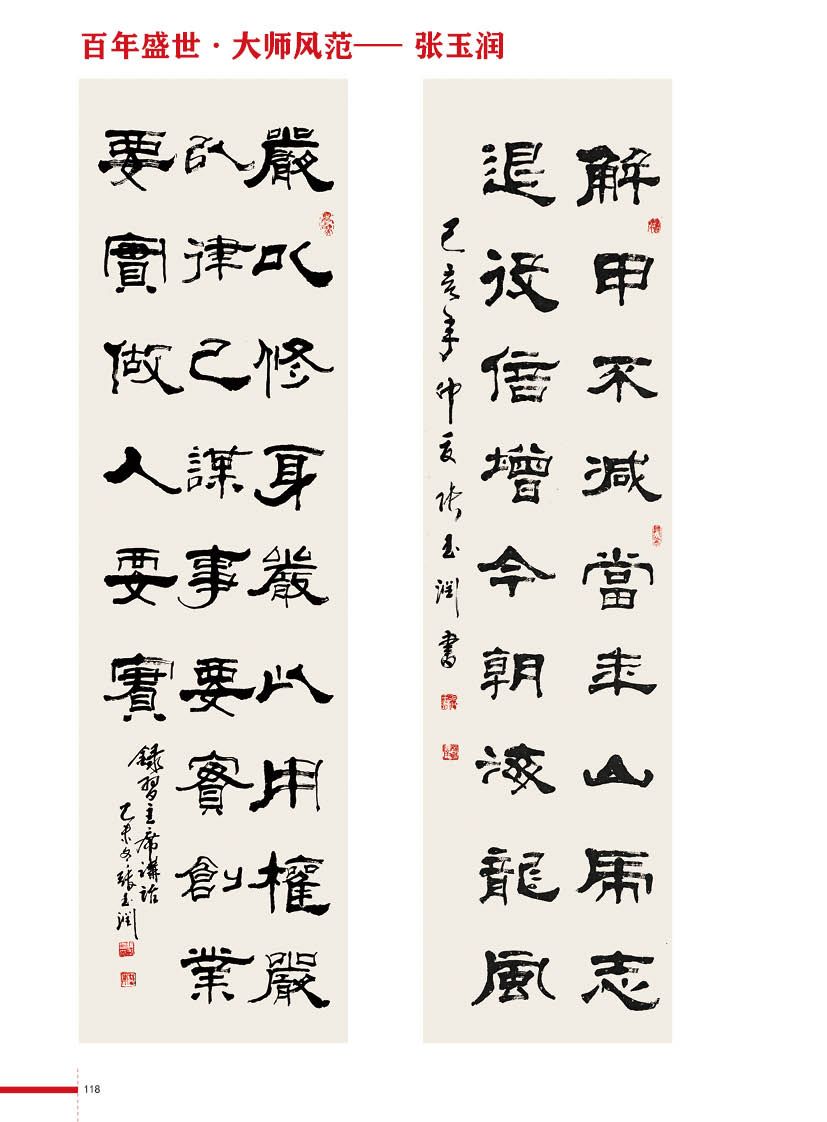 百年盛世·大师风范—— 张玉润
嚴以修身嚴以用權嚴
以律己謀事要實創業
要實做人要實
錄習主席講話
乙未冬張玉潤
解甲不減當年山虎志
退役信增今朝海龍風
己亥年仲夏張玉潤書
118